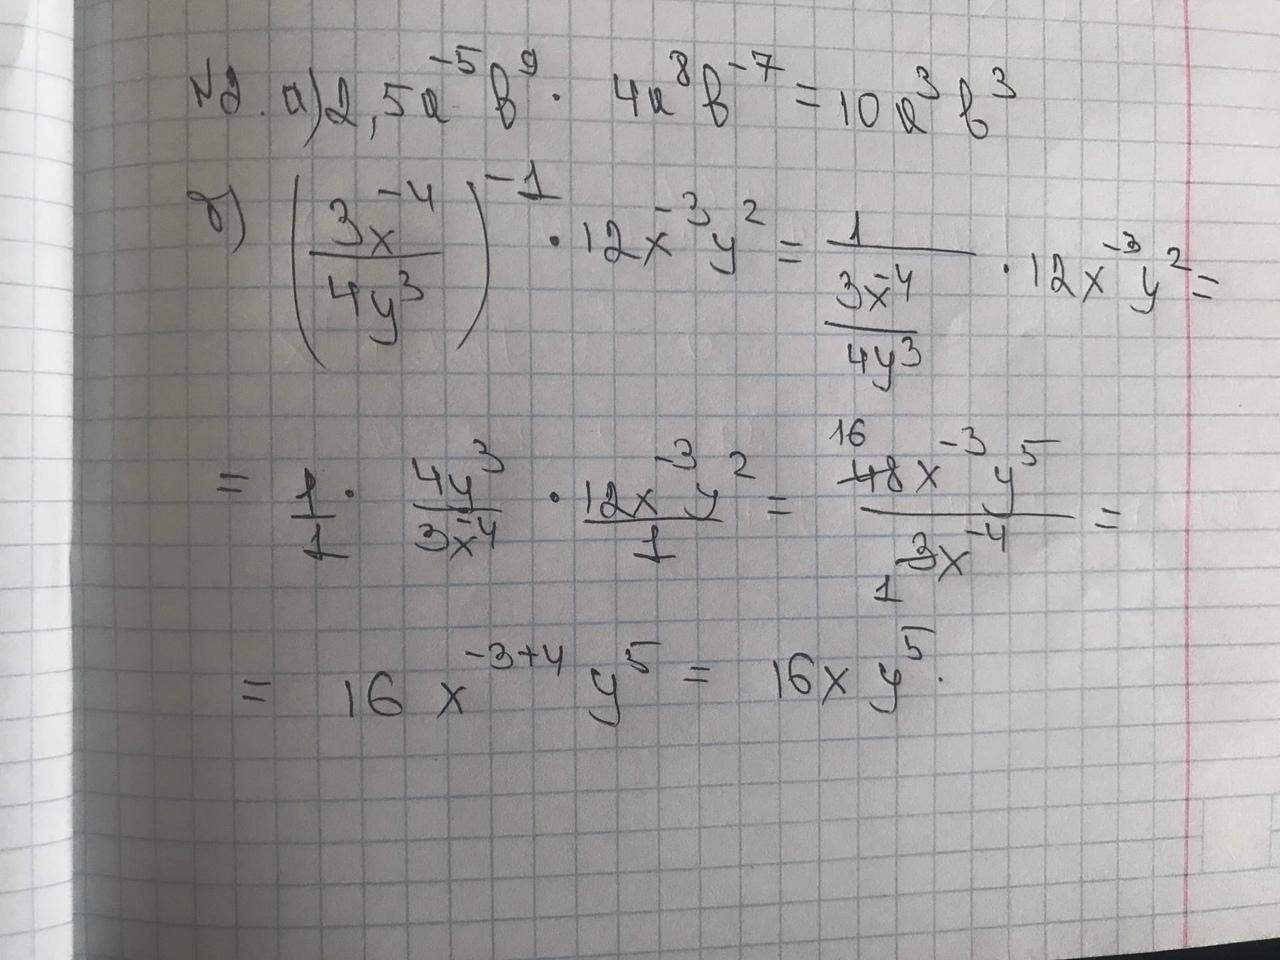 №2. а) 2,5a⁻⁵b⁹ · 4a⁸b⁻⁷ = 10a³b³
б) (3x⁻⁴/4y³)⁻¹ · 12x⁻³y² = 1/(3x⁻⁴/4y³) · 12x⁻³y² =
= 1/1 · 4y³/3x⁻⁴ · 12x⁻³y²/1 = 16 48x⁻³y⁵/1 3x⁻⁴ =
= 16x⁻³⁺⁴y⁵ = 16xy⁵.